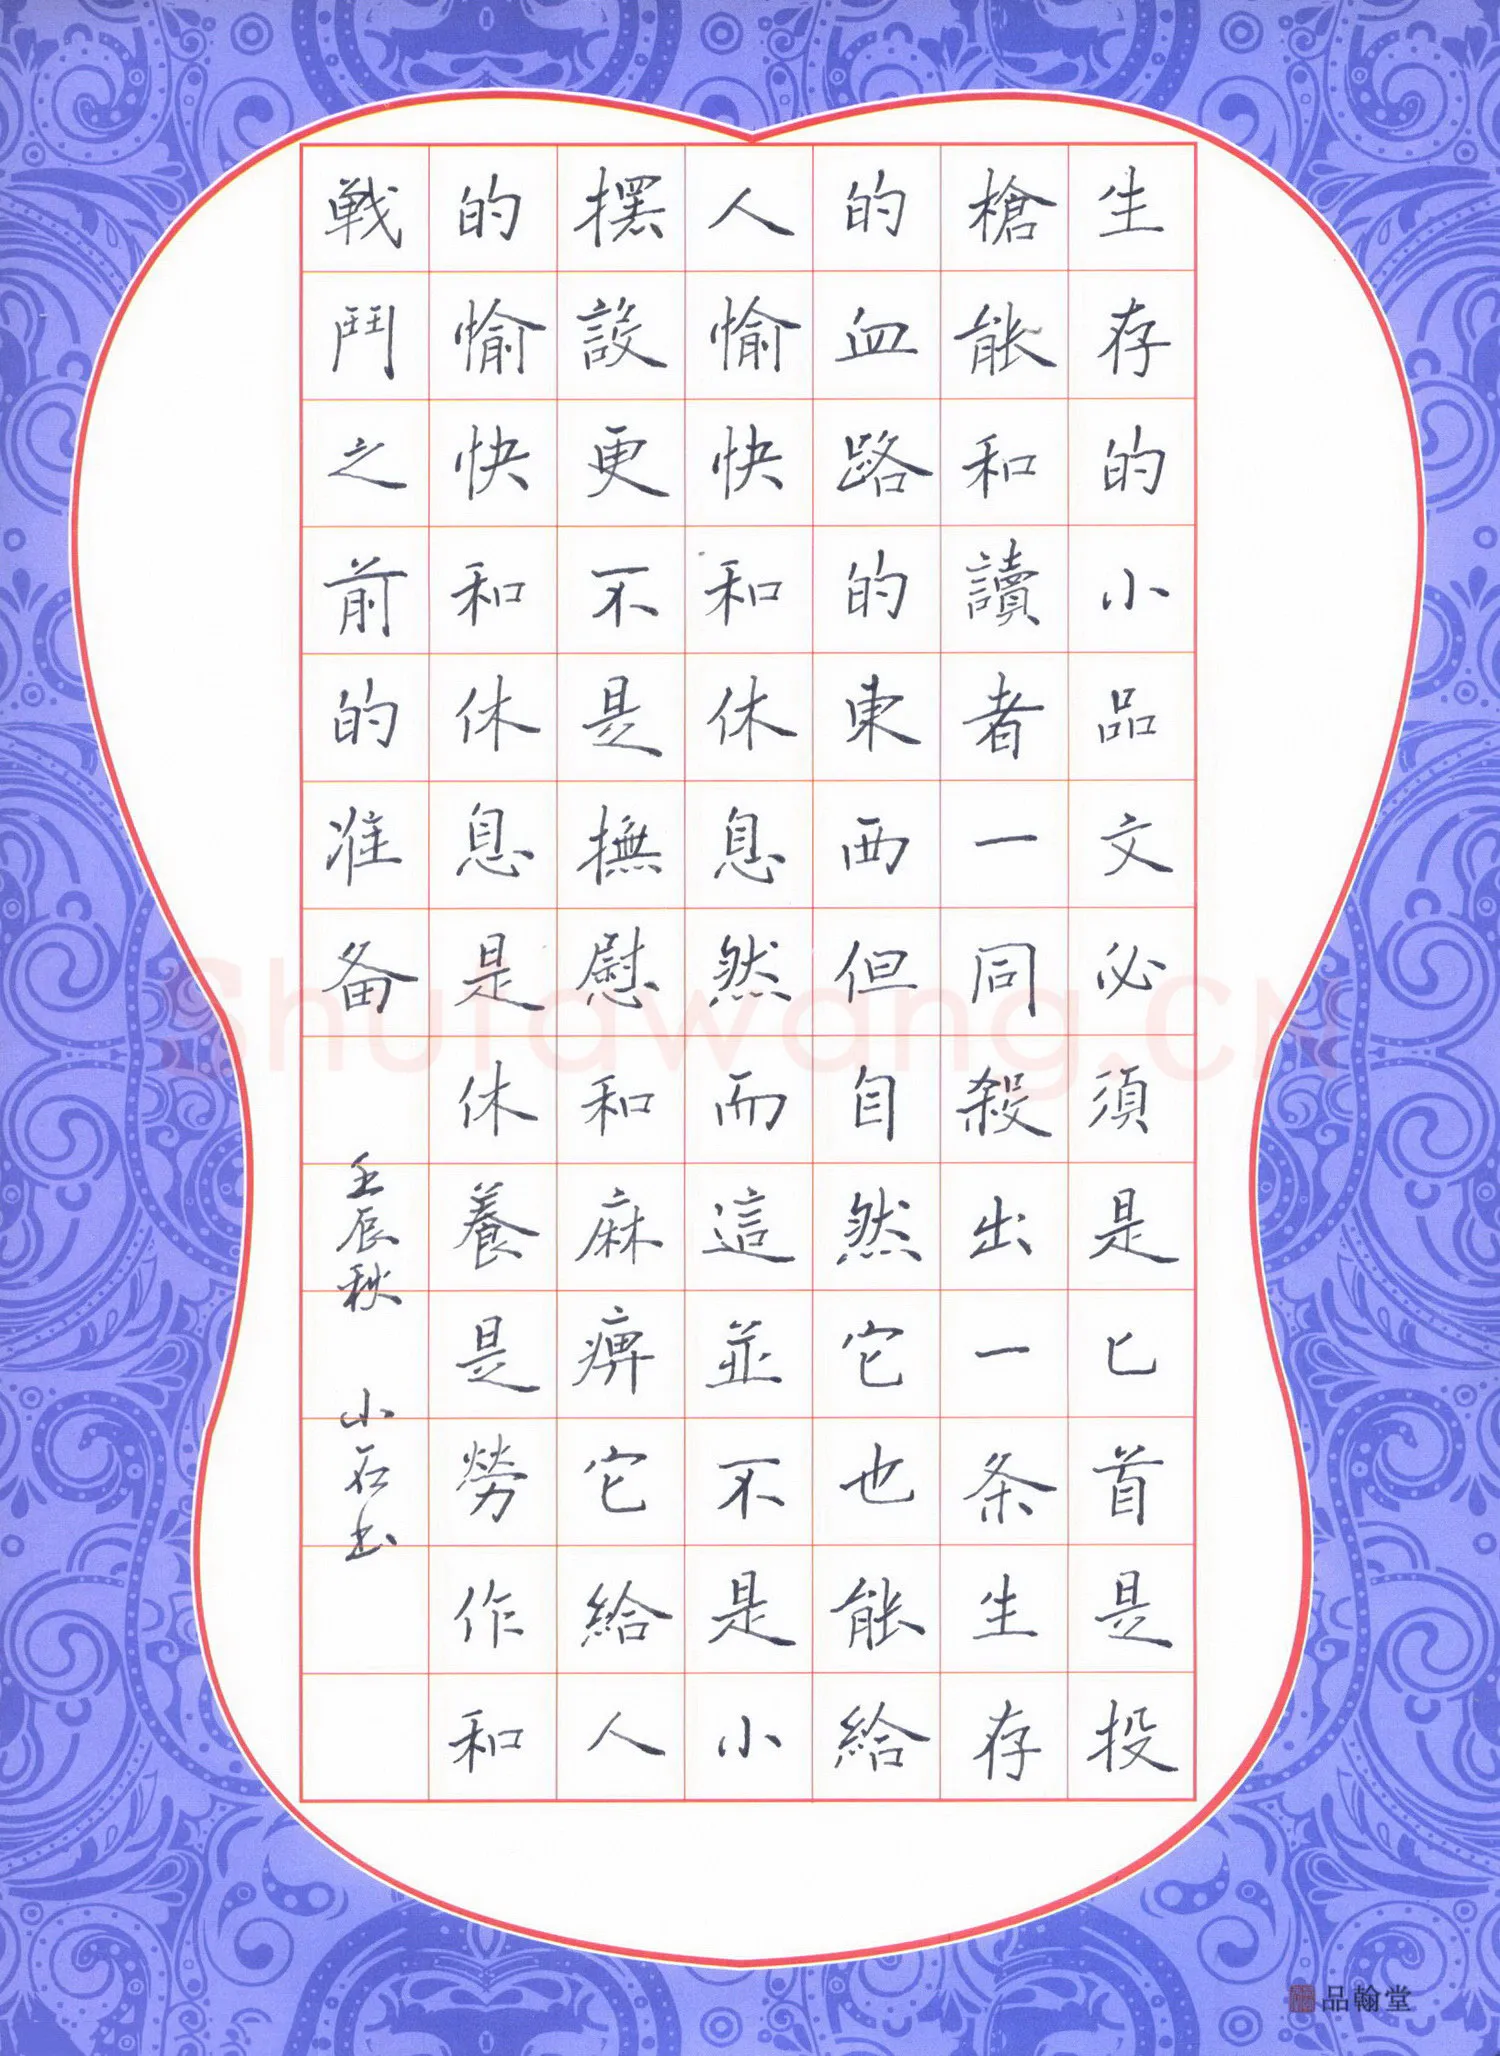 生存的小品文必須是匕首是投
槍能和讀者一同殺出一条生存
的血路的東西但自然它也能給
人愉快和休息然而這並不是小
擺設更不是撫慰和麻痹它給人
的愉快和休息是休養是勞作和
戦鬥之前的准备
壬辰秋 小石书
Shufawang.CN
品翰堂